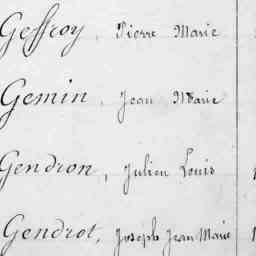 Geffroy, Pierre Marie
Gemin, Jean Marie
Gendron, Julien Louis
Gendrot, Joseph Jean Marie